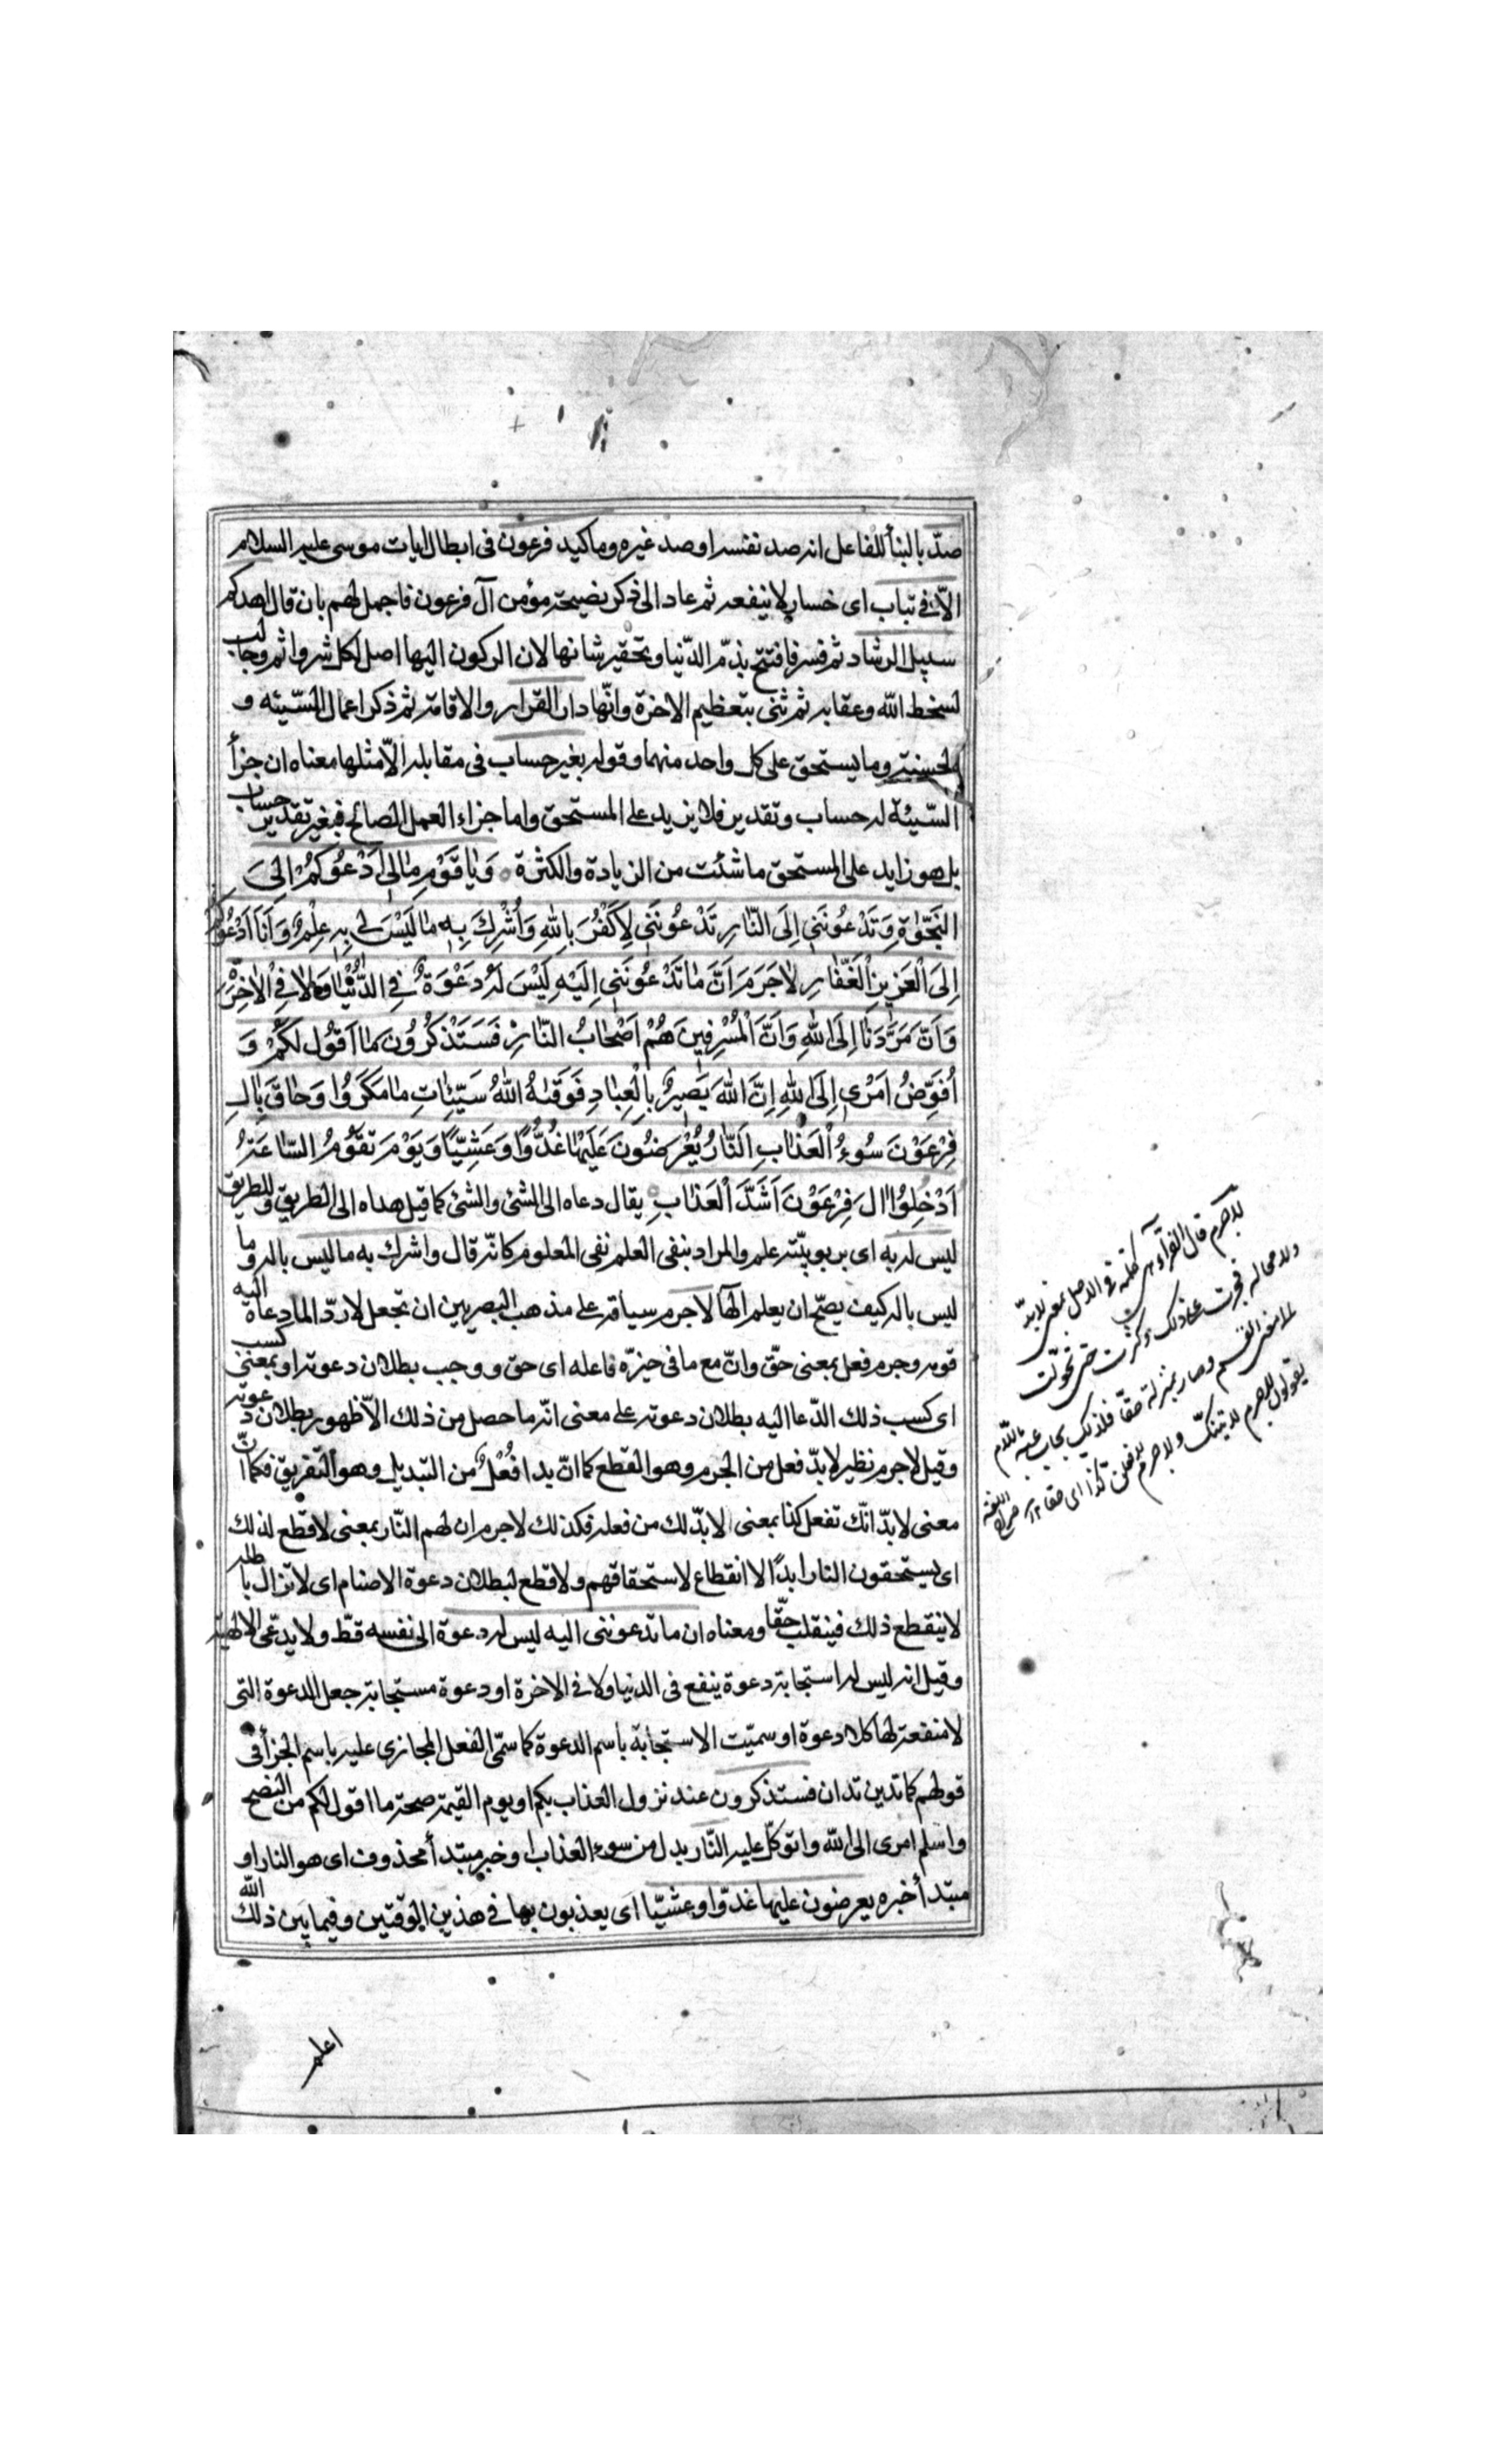 صدّ بالبنأ للفاعل انه صد نفسه او صد غيره وما كيد فرعون فى ابطال ايات موسى عليه السلام
الّا فى تباب اى خسار لا ينفعه ثم عاد الى ذكر نصيحة مؤمن آل فرعون فاجمل لهم بان قال اهدكم
سبيل الرشاد ثم فسر فافتتح بذمّ الدّنيا وتحقير شانها لان الركون اليها اصل لكل شر واثم وجالب
لسخط اللّه وعقابه ثم ثنى بتعظيم الاخرة وانّها دار القرار والاقامة ثم ذكر اعمال السّيئه و
الحسنة وما يستحق على كل واحد منهما وقوله بغير حساب فى مقابله الّا مثلها معناه ان جزأ
السّيئة له حساب وتقدير فلا يزيد على المستحق واما جزاء العمل الصالح فبغير تقدير حساب
بل هو زايد على المستحق ما شئت من الزيادة والكثرة وَيٰا قَوْمِ مٰالِى اَدْعُوكُمْ اِلَى
النَّجٰوةِ وَتَدْعُونَنِى اِلَى النّٰارِ تَدْعُونَنِى لِاَكْفُرَ بِاللهِ وَاُشْرِكَ بِهِ مٰا لَيْسَ لِى بِهِ عِلْمٌ وَاَنَا اَدْعُوكُمْ
اِلَى الْعَزِيزِ الْغَفّٰارِ لٰاجَرَمَ اَنَّ مٰا تَدْعُونَنِى اِلَيْهِ لَيْسَ لَهُ دَعْوَةٌ فِى الدُّنْيٰا وَلٰا فِى الْاٰخِرَةِ
وَاَنَّ مَرَدَّنٰا اِلَى اللهِ وَاَنَّ الْمُسْرِفِينَ هُمْ اَصْحٰابُ النّٰارِ فَسَتَذْكُرُونَ مٰا اَقُولُ لَكُمْ وَ
اُفَوِّضُ اَمْرِى اِلَى اللهِ اِنَّ اللهَ بَصِيرٌ بِالْعِبٰادِ فَوَقٰهُ اللهُ سَيِّئٰاتِ مٰا مَكَرُوا وَحٰاقَ بِاٰلِ
فِرْعَوْنَ سُوءُ الْعَذٰابِ اَلنّٰارُ يُعْرَضُونَ عَلَيْهٰا غُدُوًّا وَعَشِيًّا وَيَوْمَ تَقُومُ السّٰاعَةُ
اَدْخِلُوا اٰلَ فِرْعَوْنَ اَشَدَّ الْعَذٰابِ يقال دعاه الى الشئ والشئ كما قيل هداه الى الطريق وللطريق
ليس له به اى بربوبيّته علم والمراد بنفى العلم نفى المعلوم كانّه قال واشرك به ما ليس باله وما
ليس باله كيف يصحّ ان يعلم الٰها لا جرم سياقه على مذهب البصريين ان تجعل لا ردّ الما دعاه اليه
قومه وجرم فعل بمعنى حقّ وانّ مع ما فى حيزّه فاعله اى حق ووجب بطلان دعوته او بمعنى كسب
اى كسب ذلك الدّعا اليه بطلان دعوته على معنى انّه ما حصل من ذلك الّا ظهور بطلان دعوته
وقيل لا جرم نظير لا بدّ فعل من الجرم وهو القطع كما انّ بدا فُعْلٌ من التبديل وهو التفريق فكما انّ
معنى لا بدّ انّك تفعل كذا بمعنى لا بدّ لك من فعله فكذلك لا جرم ان لهم النّار بمعنى لا قطع لذلك
اى يستحقون النار ابدًا لا انقطاع لاستحقاقهم ولا قطع لبطلان دعوة الاصنام اى لا تزال باطله
لا ينقطع ذلك فينقلب حقّا ومعناه ان ما تدعوننى اليه ليس له دعوة الى نفسه قطّ ولا يدّعى الالهية
وقيل انه ليس له استجابة دعوة ينفع فى الدنيا ولا فى الاخرة او دعوة مستجابة جعل الدعوة التى
لا منفعة لها كلا دعوة او سميّت الاستجابة باسم الدعوة كما سمّى الفعل المجازى عليه باسم الجزأ فى
قولهم كما تدين تدان فستذكرون عند نزول العذاب بكم او يوم القيمة صحة ما اقول لكم من النصح
واسلم امرى الى اللّه واتوكّل عليه النّار بدل من سوء العذاب او خبر مبتدأ محذوف اى هو النار او
مبتدأ خبره يعرضون عليها غدوّا وعشيّا اى يعذبون بها فى هذين الوقتين وفيما بين ذلك اللّه
اعلم
لاجرم قال الفرّاء هى كلمة فى الاصل بمعنى لابدّ
ولا محالة فجرت على ذلك وكثرت حتى تحوّلت
الى معنى القسم وصار بمنزلة حقّا فلذلك يجاب عنه باللام
يقولون لاجرم لاتينّك ولاجرم لافعلنّ كذا اى حقا ١٢ صراح اللغة